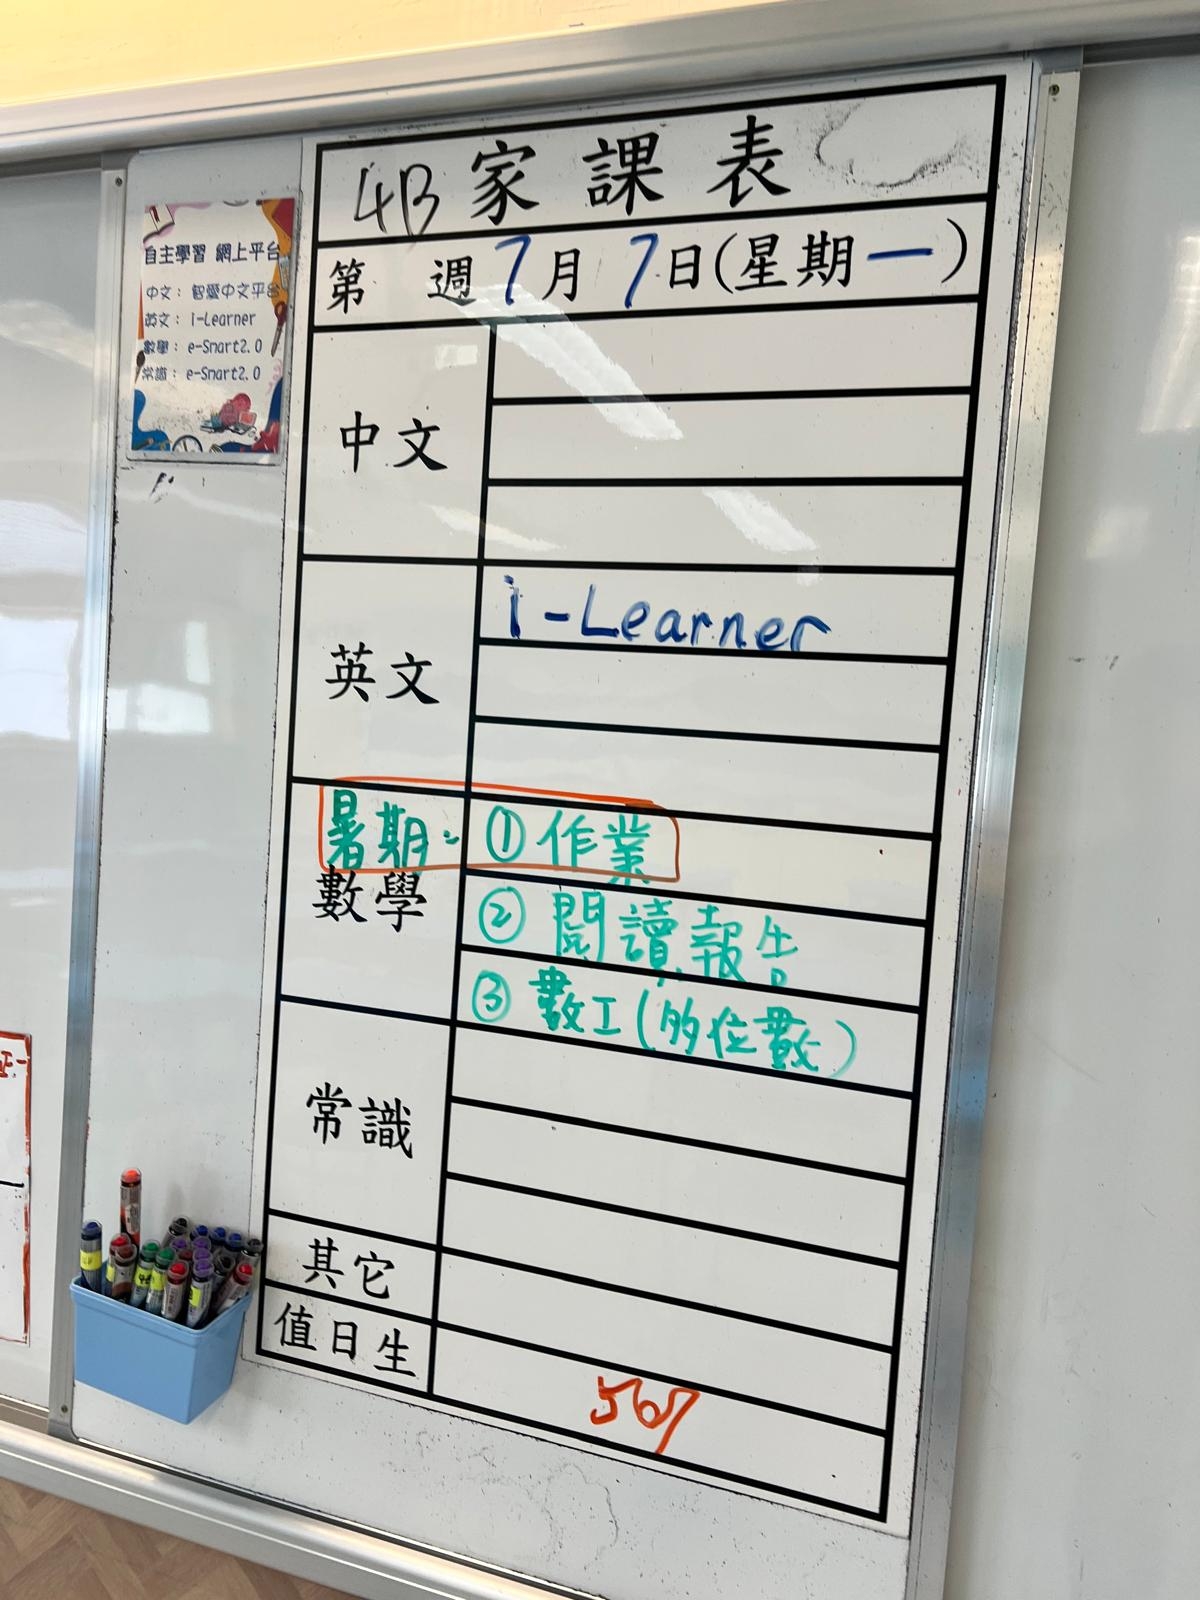 4B 家課表
第 週 7月 7日(星期一)
自主學習 網上平台
中文： 智愛中文平台
英文： i-Learner
數學： e-Smart2.0
常識： e-Smart2.0
中文
英文
i-Learner
暑期: ①作業
數學
②閱讀報告
③數工(多位數)
常識
其它
值日生
567